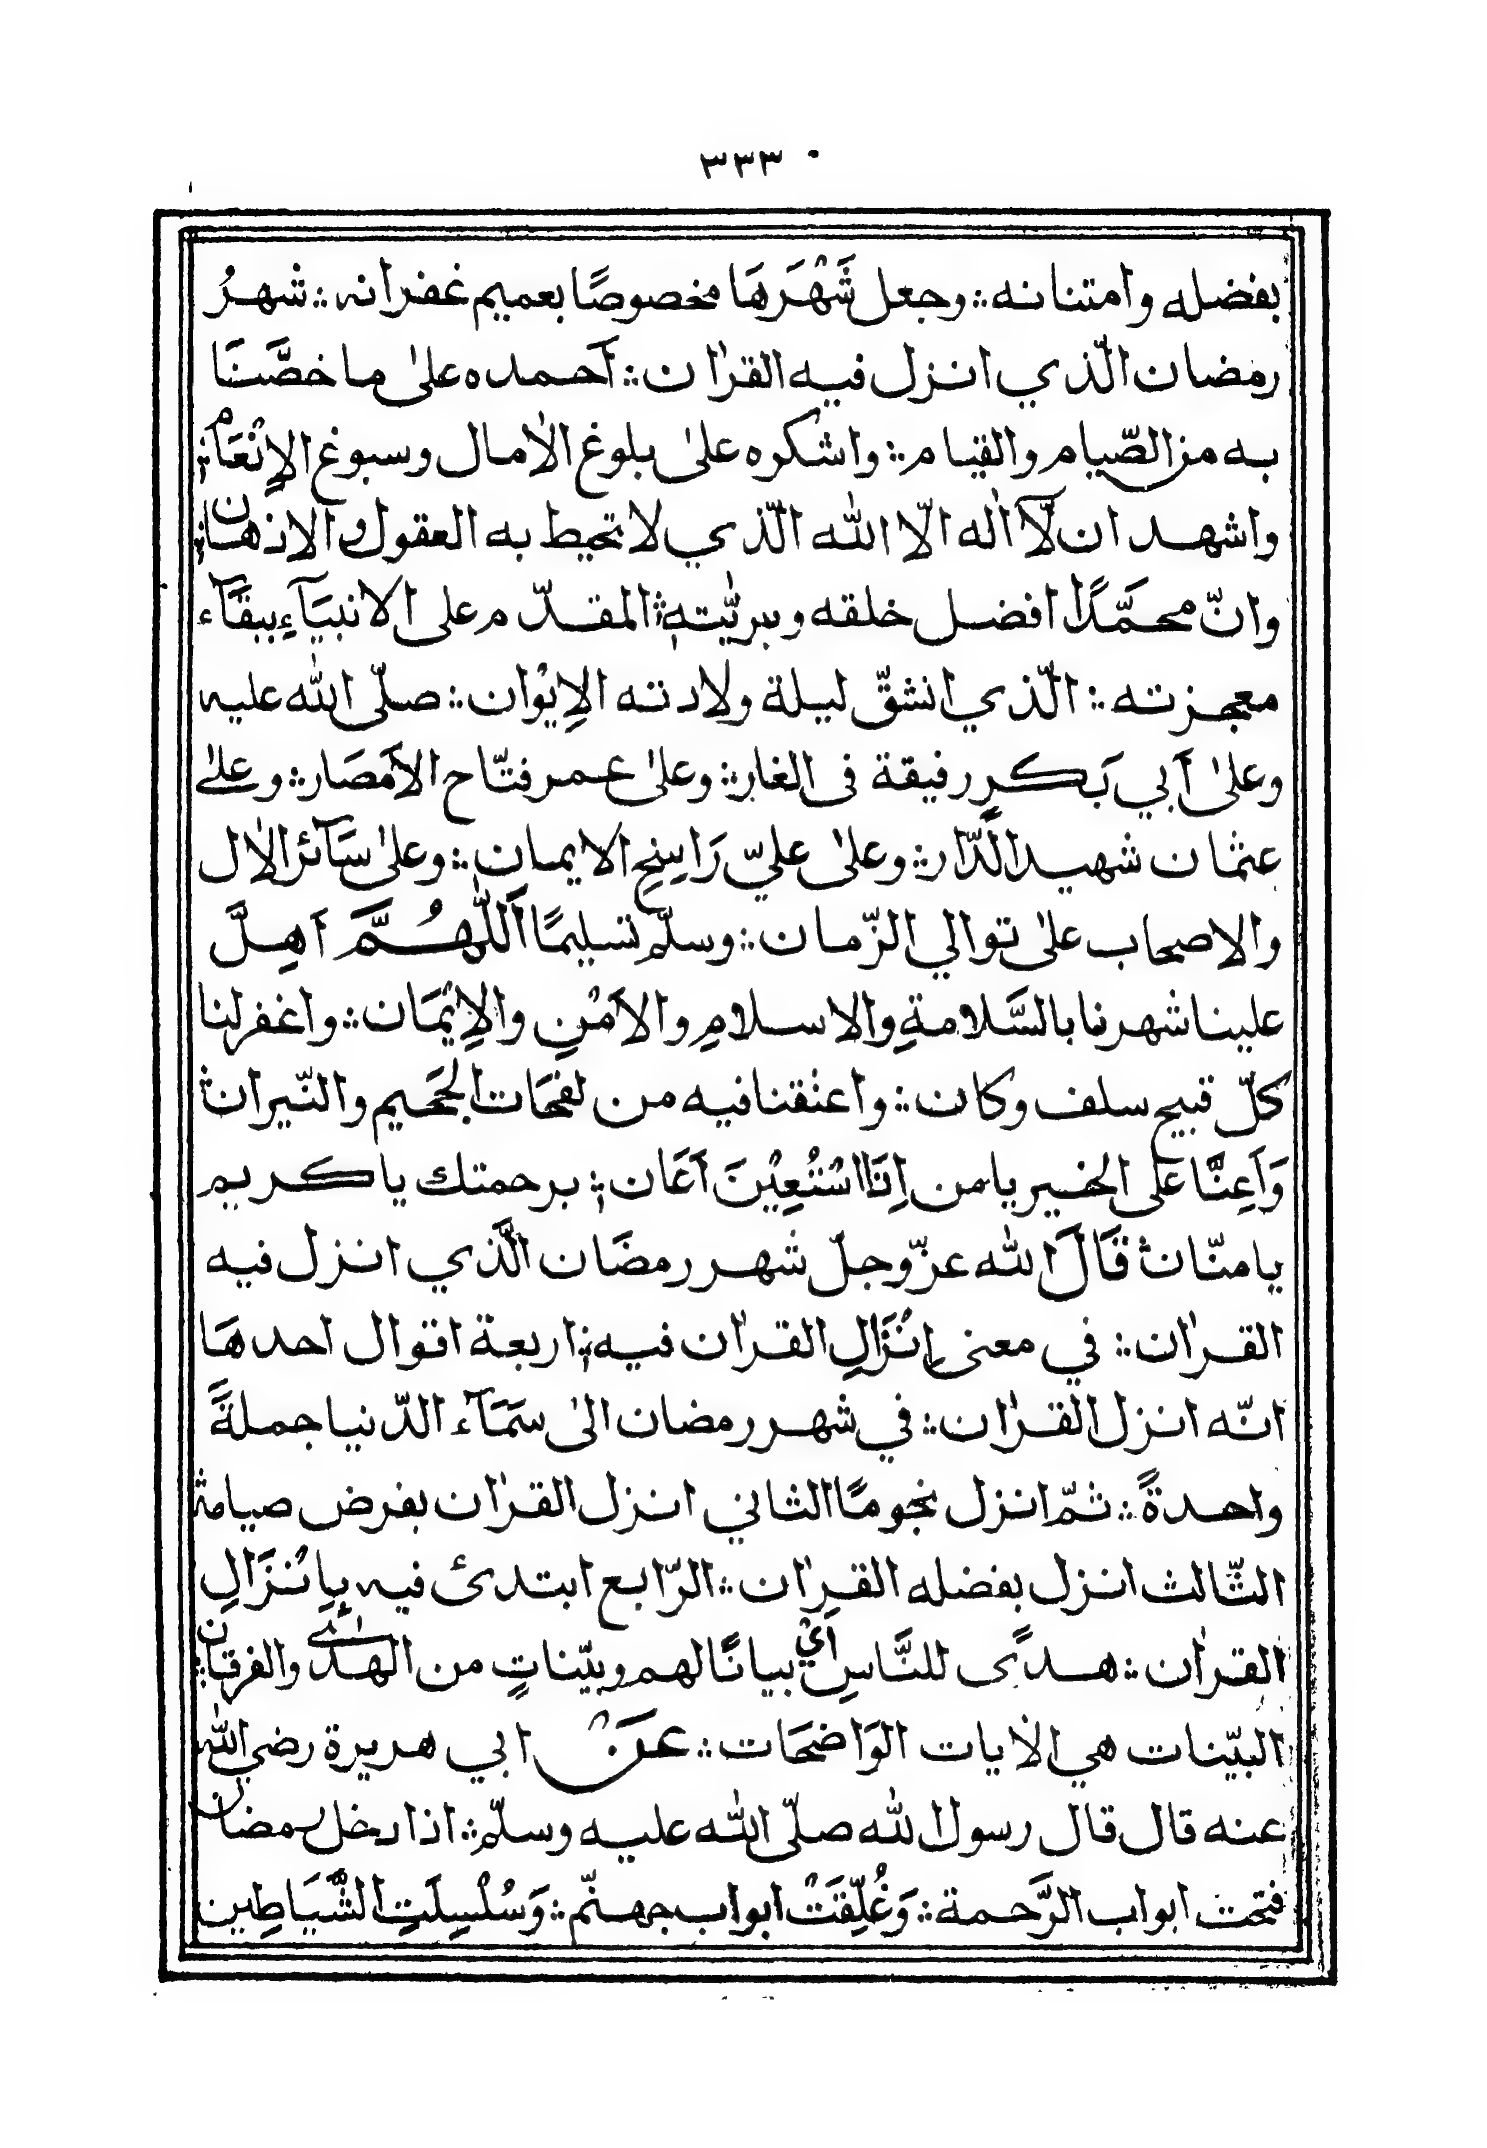 ٣٣٣
بفضله وامتنانه ؞ وجعل شَهْرَهَا مخصوصًا بعميم غفرانه ؞ شهرُ
رمضان الّذي انزل فيه القرٰان ؞ أَحمده علىٰ ما خصَّنَا
به من الصّيام والقيام ؞ واشكره علىٰ بلوغ الاٰمال وسبوغ الاِنْعَام ؞
واشهد ان لّآ اله الّا الله الّذي لا تحيط به العقول والاذهان ؞
وانّ محمّدًا افضل خلقه وبريّته ؞ المقدّم على الانبيَآءِ ببقَآء
معجزته ؞ الّذي انشقّ ليلة ولادته الاِيْوان ؞ صلّى الله عليه
وعلىٰ أَبي بَكرٍ رفيقة في الغار ؞ وعلىٰ عمر فتّاح الاَمصَار ؞ وعلىٰ
عثمان شهيد الدّار ؞ وعلىٰ عليّ رَاسِخِ الايمان ؞ وعلىٰ سَآئر الاٰل
والاصحاب علىٰ توالي الزّمان ؞ وسلّم تسليمًا اَللّٰهُمَّ اَهِلَّ
علينا شهرنا بالسَّلامةِ والاسلامِ والاَمْنِ والاِيْمَان ؞ واغفر لنا
كلّ قبيح سلف وكان ؞ واعتقنا فيه من لفحَات الجَحيم والنّيران ؞
وَاَعِنَّا على الخير يا من اِنَّا اسْتُعِيْنَ اَعَان ؞ برحمتك يا كريم
يا منّان ؞ قَالَ الله عزّ وجلّ شهر رمضَان الَّذي انزل فيه
القرٰان ؞ في معنى اِنْزَالِ القرٰان فيه ؞ اربعة اقوال احدهَا
انّه انزل القرٰان ؞ في شهر رمضان الىٰ سَمَآء الدّنيا جملةً
واحدةً ؞ ثمّ انزل نجومًا الثاني انزل القرٰان بفرض صيامه ؞
الثّالث انزل بفضله القرٰان ؞ الرّابع ابتدئ فيه بِاِنْزَالِ
القرٰان ؞ هدًى للنَّاسِ اَيْ بيانًا لهم وبيّناتٍ من الهدٰى والفرقان ؞
البيّنات هي الاٰيات الوَاضحَات ؞ عَنْ ابي هريرة رضي الله
عنه قال قال رسول الله صلّى الله عليه وسلّم ؞ اذا دخل رمضان
فتحت ابواب الرَّحمة ؞ وَغُلِّقَتْ ابواب جهنّم ؞ وَسُلْسِلَتِ الشَّيَاطِين